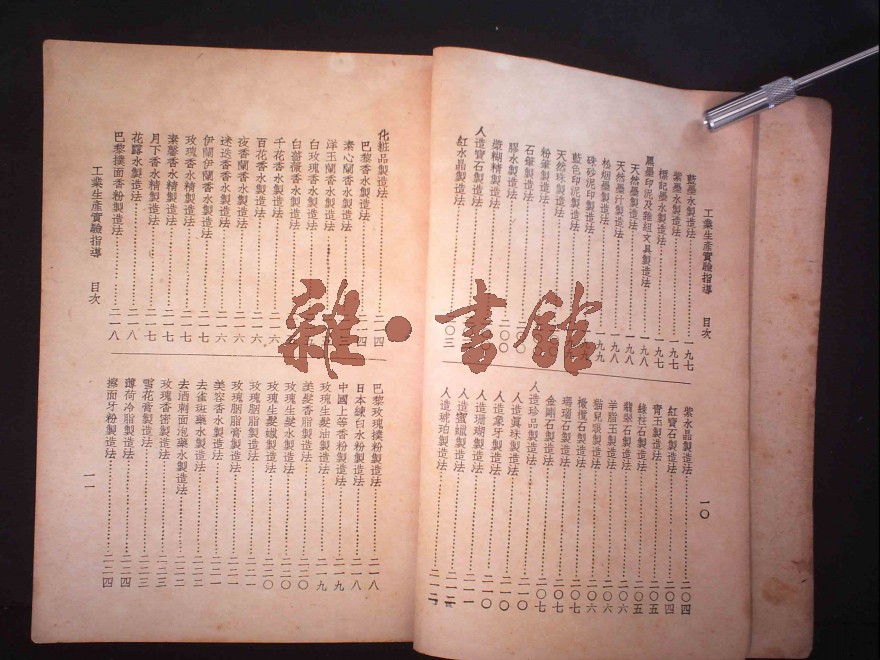 工業生產實驗指導　目次
藍墨水製造法……一九七
紫墨水製造法……一九七
標記墨水製造法……一九七
黑墨印泥及雜組文具製造法……一九八
天然墨製造法……一九八
天然墨汁製造法……一九八
松烟墨製造法……一九九
硃砂泥印製造法……一九九
藍色印泥製造法……
天然珠製造法……
粉筆製造法……
石筆製造法……
膠水製造法……二〇〇
漿糊精製造法……二〇〇
人造寶石製造法
紅水晶製造法……二〇三
紫水晶製造法……二〇四
紅寶石製造法……二〇四
青玉製造法……二〇五
綠柱石製造法……二〇五
翡翠石製造法……二〇六
羊脂玉製造法……二〇六
貓兒眼製造法……二〇六
橄欖石製造法……二〇七
瑪瑙石製造法……二〇七
金剛石製造法……二〇七
人造珍品製造法
人造真珠製造法……二一〇
人造象牙製造法……二一〇
人造珊瑚製造法……二一一
人造蜜蠟製造法……二一二
人造琥珀製造法……二一二
一〇
化粧品製造法……二一四
巴黎香水製造法……二一四
素心蘭香水製造法……
洋玉蘭香水製造法……
白玫瑰香水製造法……
白薔薇香水製造法……
千花香水製造法……二一六
百花香水製造法……二一六
夜香蘭香水製造法……二一六
迷迭香水製造法……二一六
伊蘭伊蘭香水製造法……二一七
玫瑰香水精製造法……二一七
素馨香水精製造法……二一七
月下香水精製造法……二一七
花露水製造法……二一八
巴黎撲面香粉製造法……二一八
巴黎玫瑰撲粉製造法……二一八
日本練白水粉製造法……二一八
中國上等香粉製造法……二一九
玫瑰生髮油製造法……二一九
美髮香脂製造法……二二〇
玫瑰生髮水製造法……二二〇
玫瑰生髮蠟製造法……二二〇
玫瑰胭脂製造法……二二一
玫瑰胭脂膏製造法……二二一
美容香水製造法……二二一
去雀斑藥水製造法……二二三
去酒刺面泡藥水製造法……二二三
玫瑰香密製造法……二二三
雪花膏製造法……二二三
薄荷冷脂製造法……二二四
擦面牙粉製造法……二二四
工業生產實驗指導　目次
一一
雜·書館